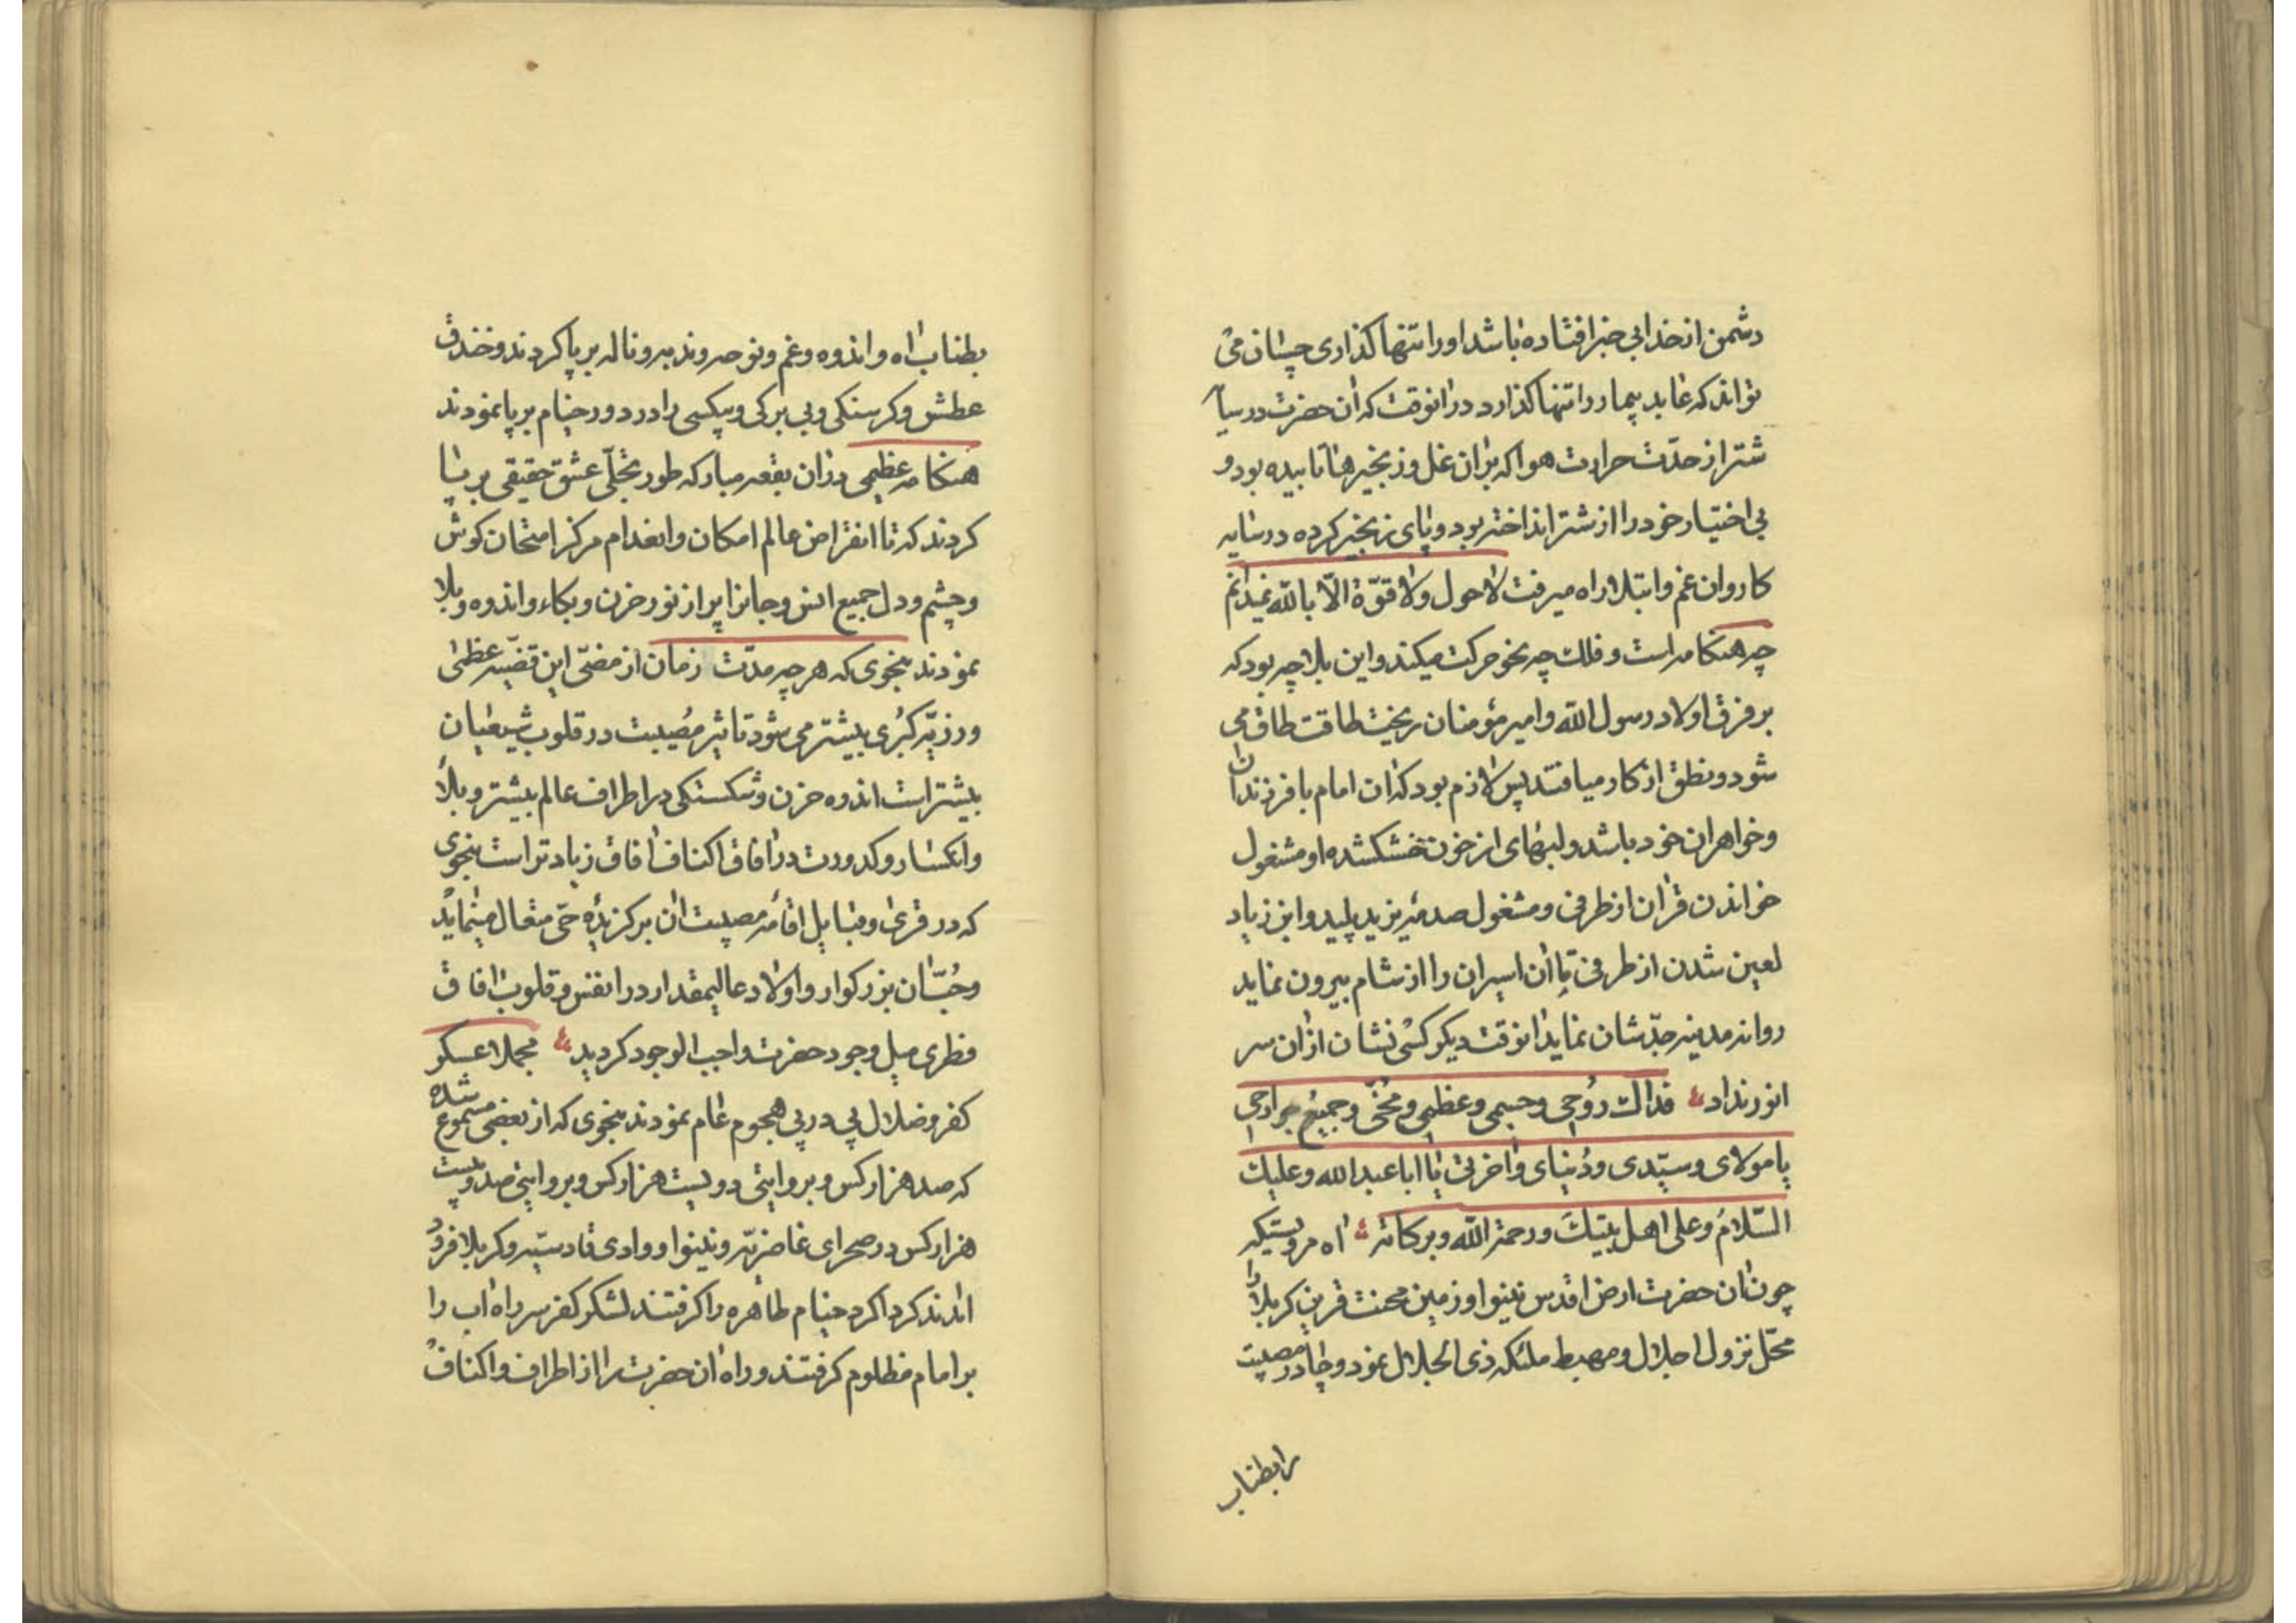 دشمن از خدا بی خبر افتاده باشد او را تنها کذاری چسان می
تواند که عابد بیمار را تنها کذارد در انوقت که ان حضرت در سیا
شتر از حدّت حرارت هوا که بر ان غل و زنجیر ها تابیده بود و
بی اختیار خود را از شتر انداخته بود و پای زنجیر کرده در سایه
کاروان غم و ابتلا راه میرفت لا حول ولا قوّة الّا بالله نمیدانم
چه هنکامه است و فلک چه نحو حرکت میکند و این بلا چه بود که
بر فرق اولاد رسول الله و امیر مؤمنان ریخت طاقت طاق می
شود و نطق از کار میافتد پس لازم بود که ان امام با فرزندان
و خواهران خود باشد و لبهای از خون خشکشده او مشغول
خواندن قران از طرفی و مشغول صدمۀ یزید پلید و ابن زیاد
لعین شدن از طرفی تا ان اسیران را از شام بیرون نماید
روانه مدینه جدّشان نماید انوقت دیکر کسی نشان از ان سر
انور نداد فداک روُحی وجسمی وعظمی ومُخّی وجمیعُ جوارحی
یا مولای وسیّدی ودُنیای واخرتی یا ابا عبد الله وعلیک
السّلامُ وعلی اهل بیتِکَ ورحمة الله وبرکاته اه مرویستکه
چون ان حضرت ارض اقدس نینوا و زمین محنت قرین کربلا را
محّل نزول اجلال و مهبط ملئکه ذی الجلال نمود و چادر مصیبت
را بطناب
بطناب اه و اندوه و غم و نوحه و ندبه و ناله بر پا کردند و خندق
عطش و کرسنکی و بی برکی و بیکسی را در دور خیام بر پا نمودند
هنکامه عظیمی در ان بقعه مبارکه طور تجّلی عشق حقیقی بر پا
کردند که تا انقراض عالم امکان و انعدام مرکز امتحان کوش
و چشم و دل جمیع انس و جانرا پر از نور حزن و بکاء و اندوه و بلا
نمودند بنحوی که هر چه مدّت زمان از مضّی این قضیّه عظمی
و رزیّه کبُری بیشتر می شود تاثیر مُصیبت در قلوب شیعیان
بیشتر است اندوه حزن و شکستکی در اطراف عالم بیشتر و بالا
و انکسار و کدورت در افاق اکناف افاق زیاد تر است بنحوی
که در قری و قبایل اقامۀ مصیبت ان برکزیدۀ حّی متعال مینماید
و حُبّ ان بزرکوار و اولاد عالیمقدار در انفس و قلوب افاق
فطری میل وجود حضرت واجب الوجود کردید مجملا عسکر
کفر و ضلال پی در پی هجوم عام نمودند بنحوی که از بعضی مسموع شده
که صد هزار کس و بروایتی دویست هزار کس و بروایتی صد و بیست
هزار کس در صحرای غاضریّه و نینوا و وادی قادسیّه و کربلا فرود
امدند کردا کرد خیام طاهره را کرفتند لشکر کفر سر راه اب را
بر امام مظلوم کرفتند و راه ان حضرت را از اطراف و اکناف